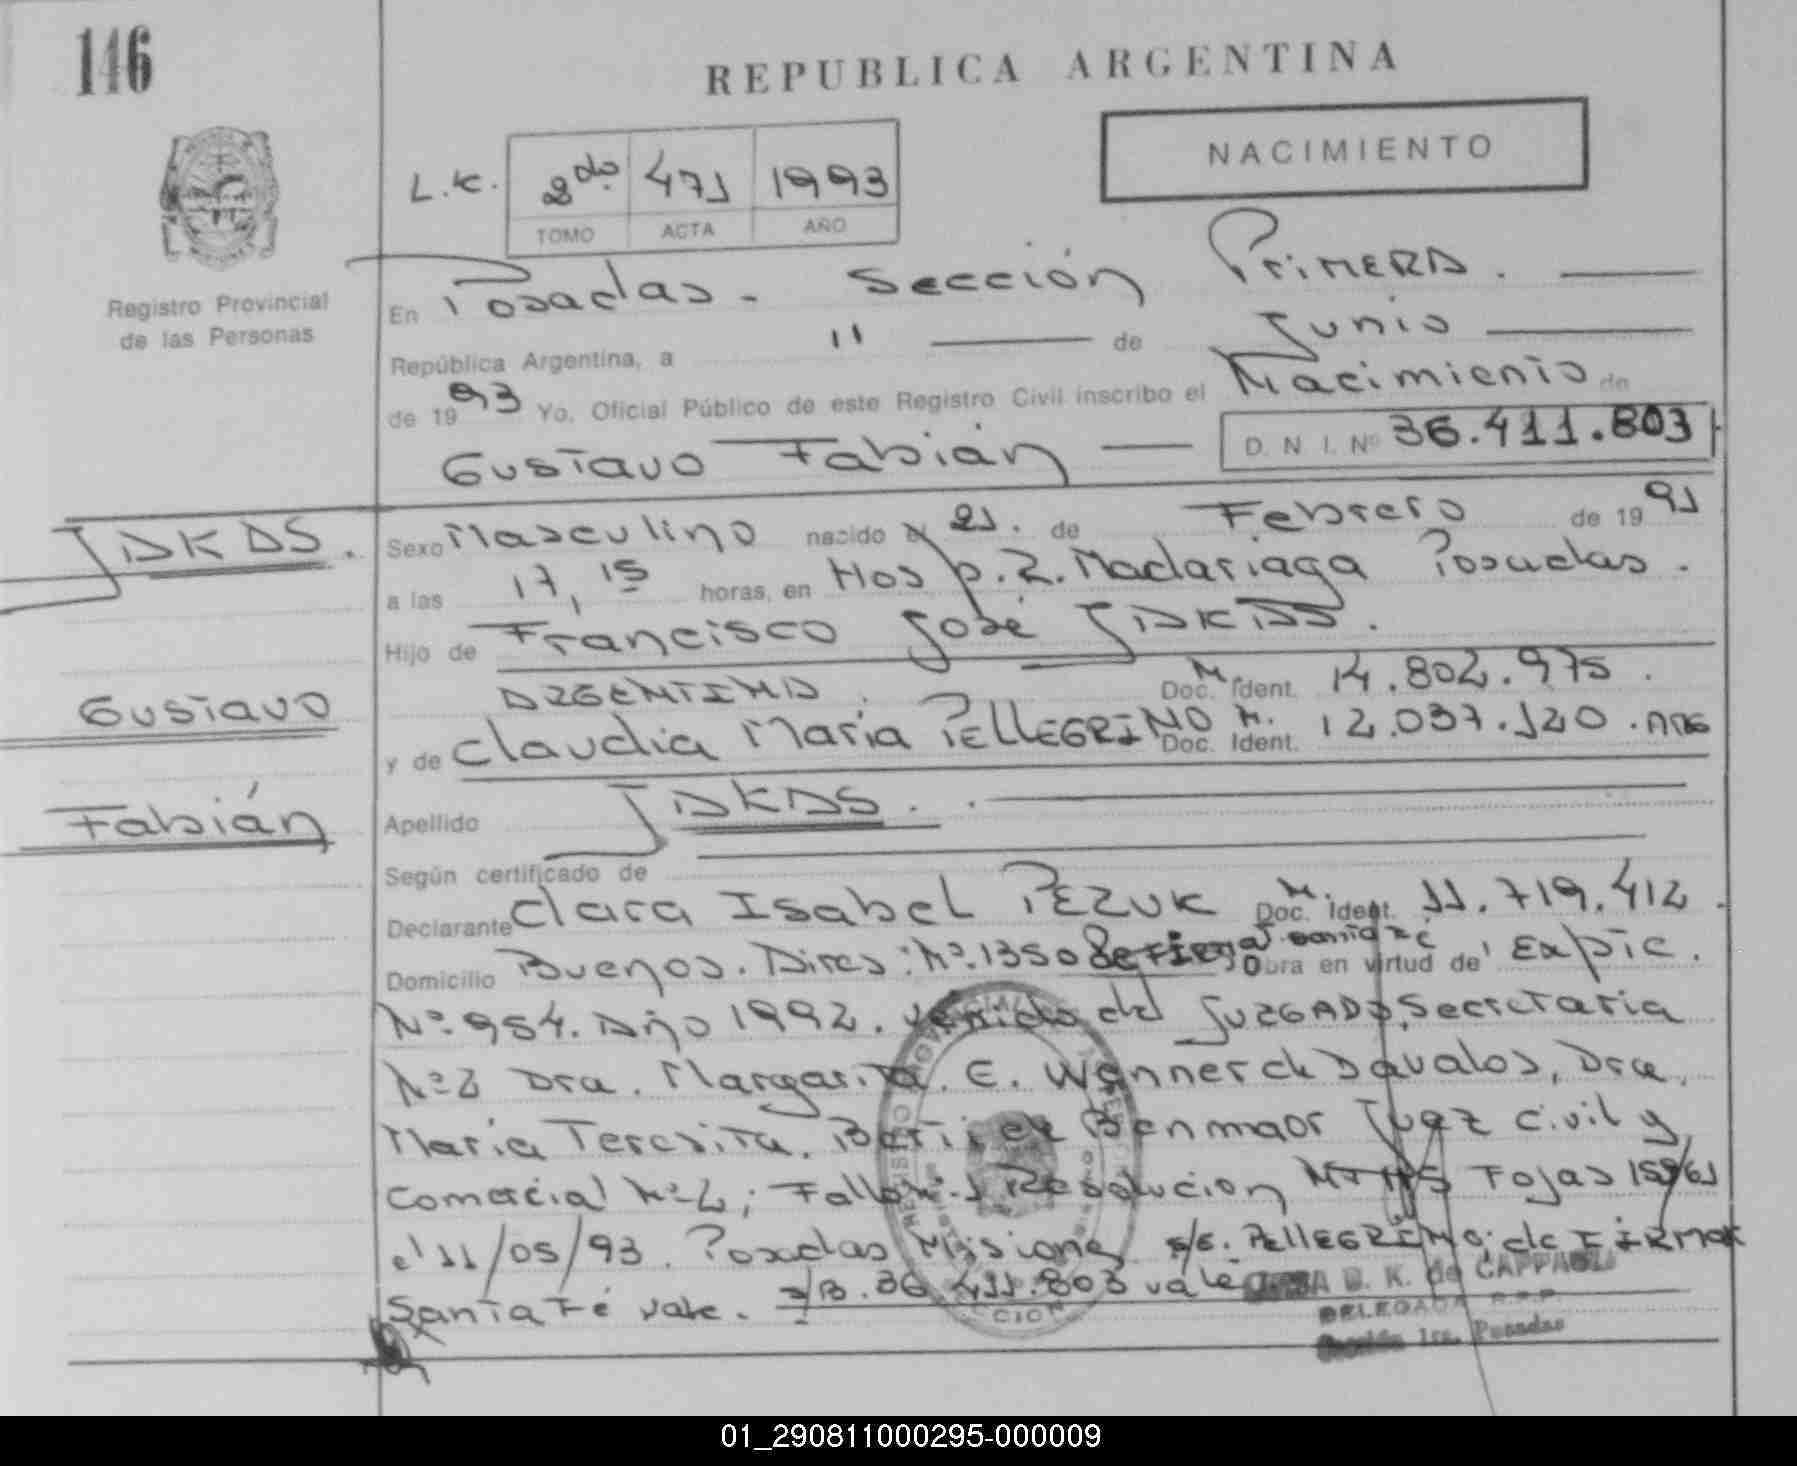 146
REPUBLICA ARGENTINA
NACIMIENTO
L.C. 2do. 471 1993
TOMO ACTA AÑO
Registro Provincial
de las Personas
En Posadas. Sección Primera.
República Argentina, a 11 de Junio
de 1993 Yo, Oficial Público de este Registro Civil inscribo el Nacimiento de
Gustavo Fabián D. N. I. Nº 36.411.803
JAKAS. Sexo Masculino nacido el 21. de Febrero de 1991
a las 17,15 horas, en Hosp. R. Madariaga Posadas.
Hijo de Francisco José JAKAS.
ARGENTINA. M. Doc. Ident. 14.802.975.
Gustavo
y de Claudia María PELLEGRINO M. Doc. Ident. 12.037.120. ARG
Fabián
Apellido JAKAS.
Según certificado de
Declarante Clara Isabel PEZUK M. Doc. Ident. 11.719.412.
Domicilio Buenos. Aires: Nº.1350 Santa Fé Obra en virtud de Expte.
Nº.954. Año 1992. venido del JUZGADO, Secretaria
Nº2 Dra. Margarita. E. Wanner de Davalos, Dra.
María Teresita. de Benmaor Juez Civil y
Comercial Nº2; Fallo Resolucion Fojas
el 11/05/93. Posadas Misiones s/E. PELLEGRINO;
Santa Fé vale. s/B. 36 411.803 vale
B. K. de CAPPA
DELEGADA R.P.P.
Sección 1ra. Posadas
01_290811000295-000009